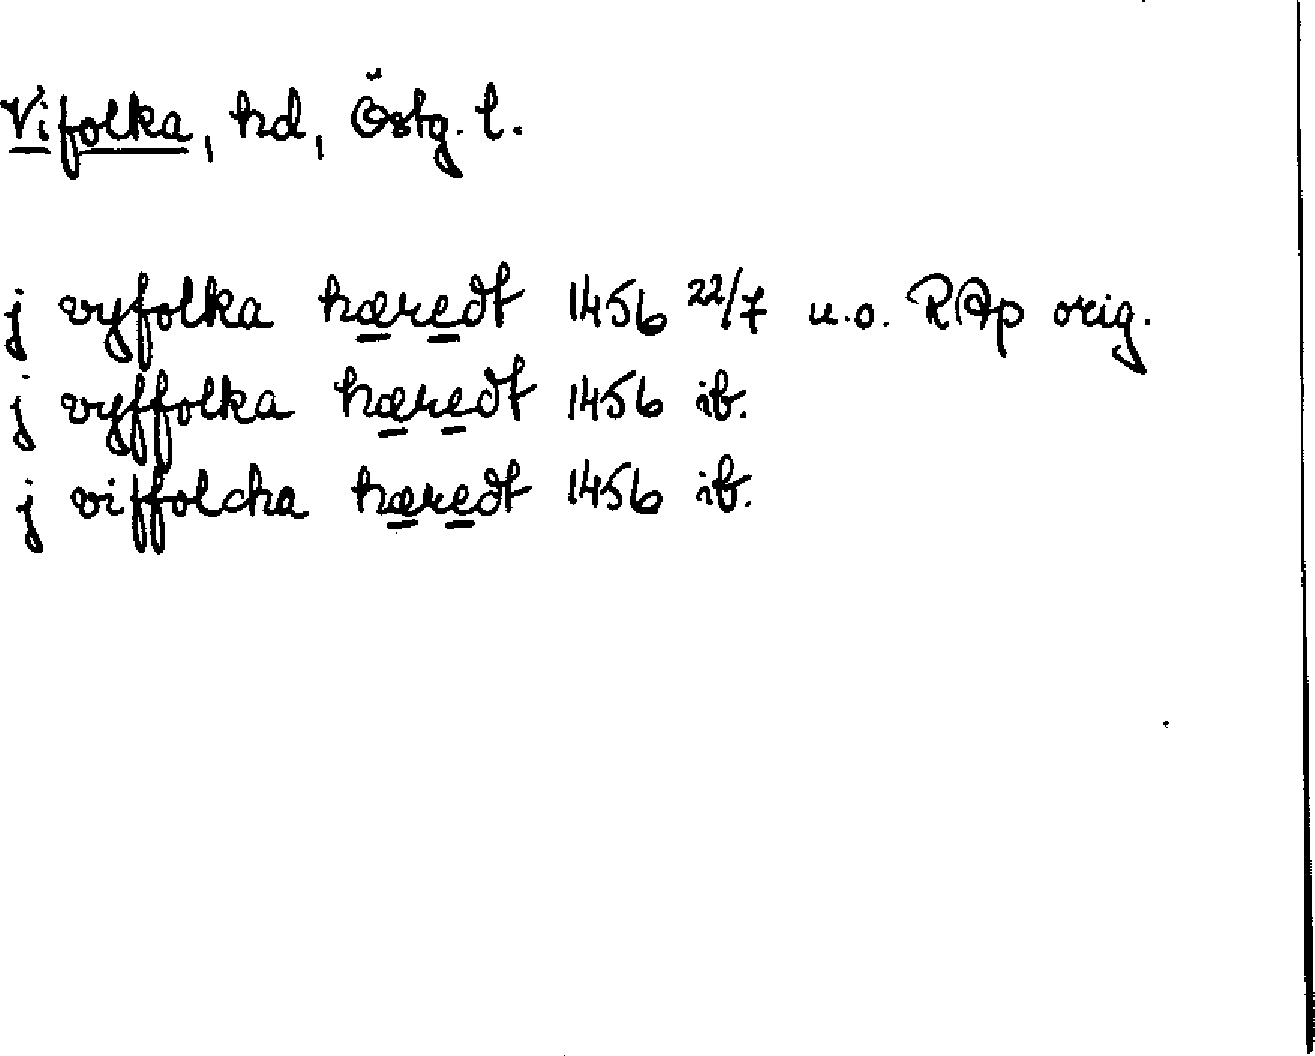 Vifolka, hd, Östg. l.
j vyfolka hæredt 1456 22/7 u.o. RAp orig.
j vyffolka hæredt 1456 ib.
j viffolcha hæredt 1456 ib.